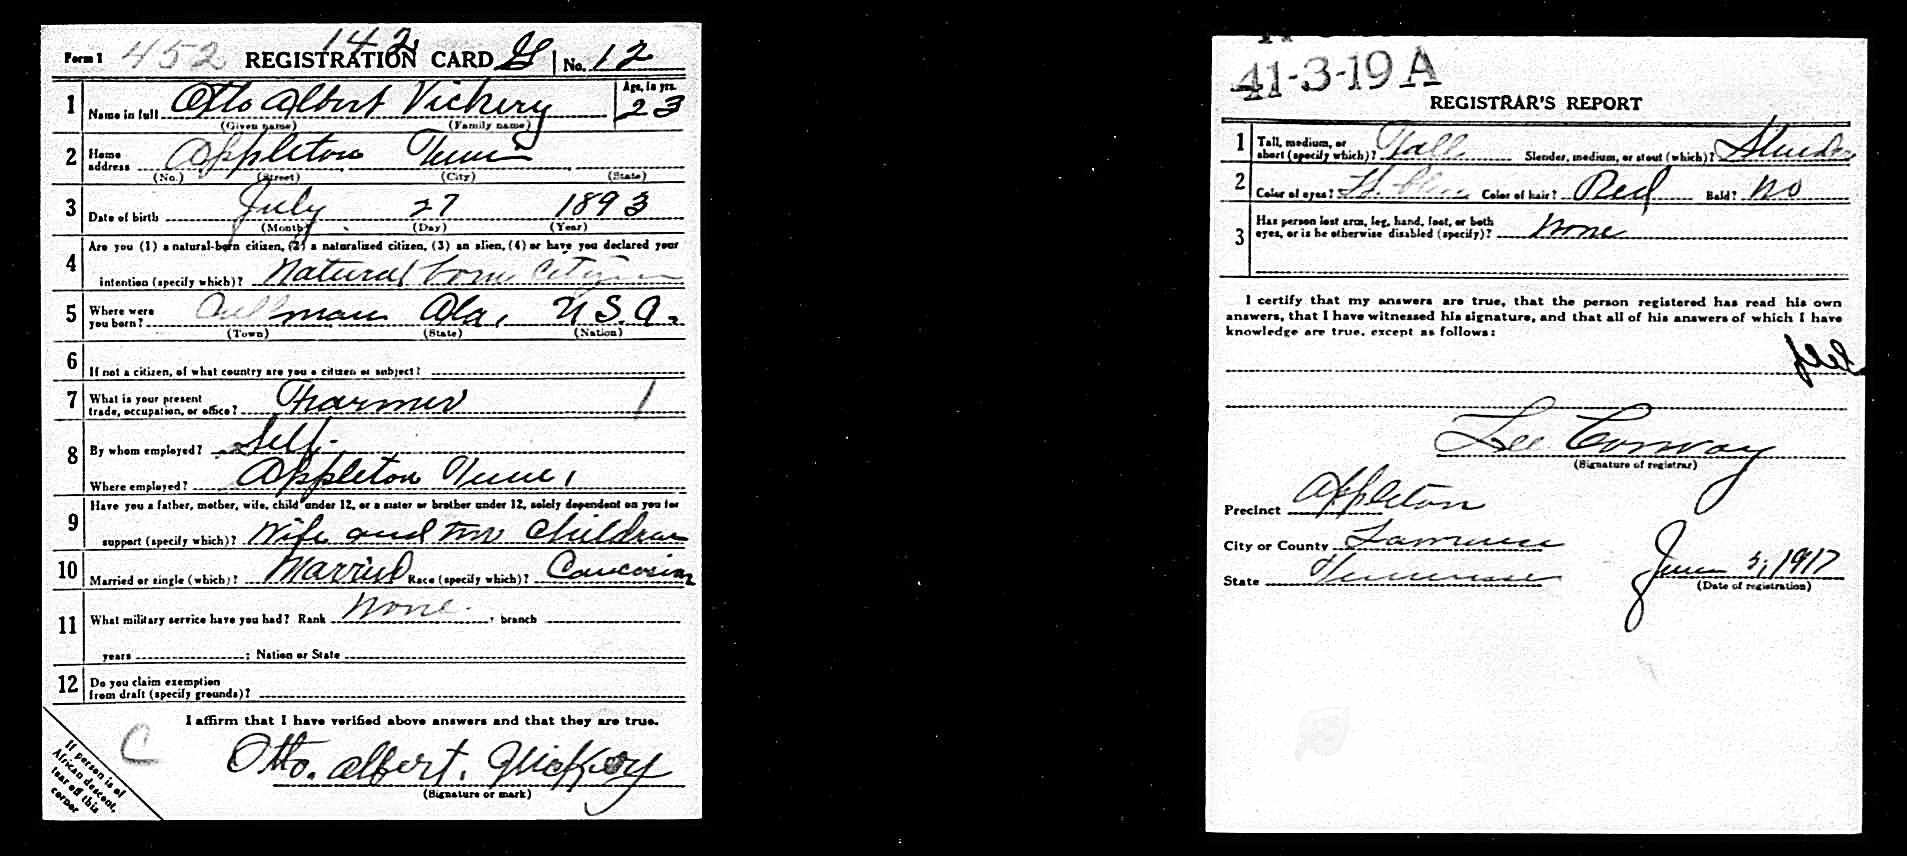 142
Form 1 452 REGISTRATION CARD No. 12
1 Name in full Otto Albert Vickery Age, in yrs. 23
(Given name) (Family name)
2 Home address Appleton Tenn
(No.) (Street) (City) (State)
3 Date of birth July 27 1893
(Month) (Day) (Year)
Are you (1) a natural-born citizen, (2) a naturalized citizen, (3) an alien, (4) or have you declared your
4 intention (specify which)? Natural born Citizen
5 Where were you born? Cullman Ala, U.S.A.
(Town) (State) (Nation)
6 If not a citizen, of what country are you a citizen or subject?
7 What is your present trade, occupation, or office? Farmer 1
8 By whom employed? Self.
Where employed? Appleton Tenn,
Have you a father, mother, wife, child under 12, or a sister or brother under 12, solely dependent on you for
9 support (specify which)? Wife and two Children
10 Married or single (which)? Married Race (specify which)? Caucasian
11 What military service have you had? Rank None , branch
years ; Nation or State
12 Do you claim exemption from draft (specify grounds)?
I affirm that I have verified above answers and that they are true.
C
Otto. albert. Vickery
(Signature or mark)
If person is of
African descent,
tear off this
corner
41-3-19 A
REGISTRAR'S REPORT
1 Tall, medium, or short (specify which)? Tall Slender, medium, or stout (which)? Slender
2 Color of eyes? Color of hair? Red Bald? No
3 Has person lost arm, leg, hand, foot, or both eyes, or is he otherwise disabled (specify)? None
I certify that my answers are true, that the person registered has read his own
answers, that I have witnessed his signature, and that all of his answers of which I have
knowledge are true, except as follows:
Lee Conway
(Signature of registrar)
Precinct Appleton
City or County Lawrence
State Tennessee
June 5, 1917
(Date of registration)